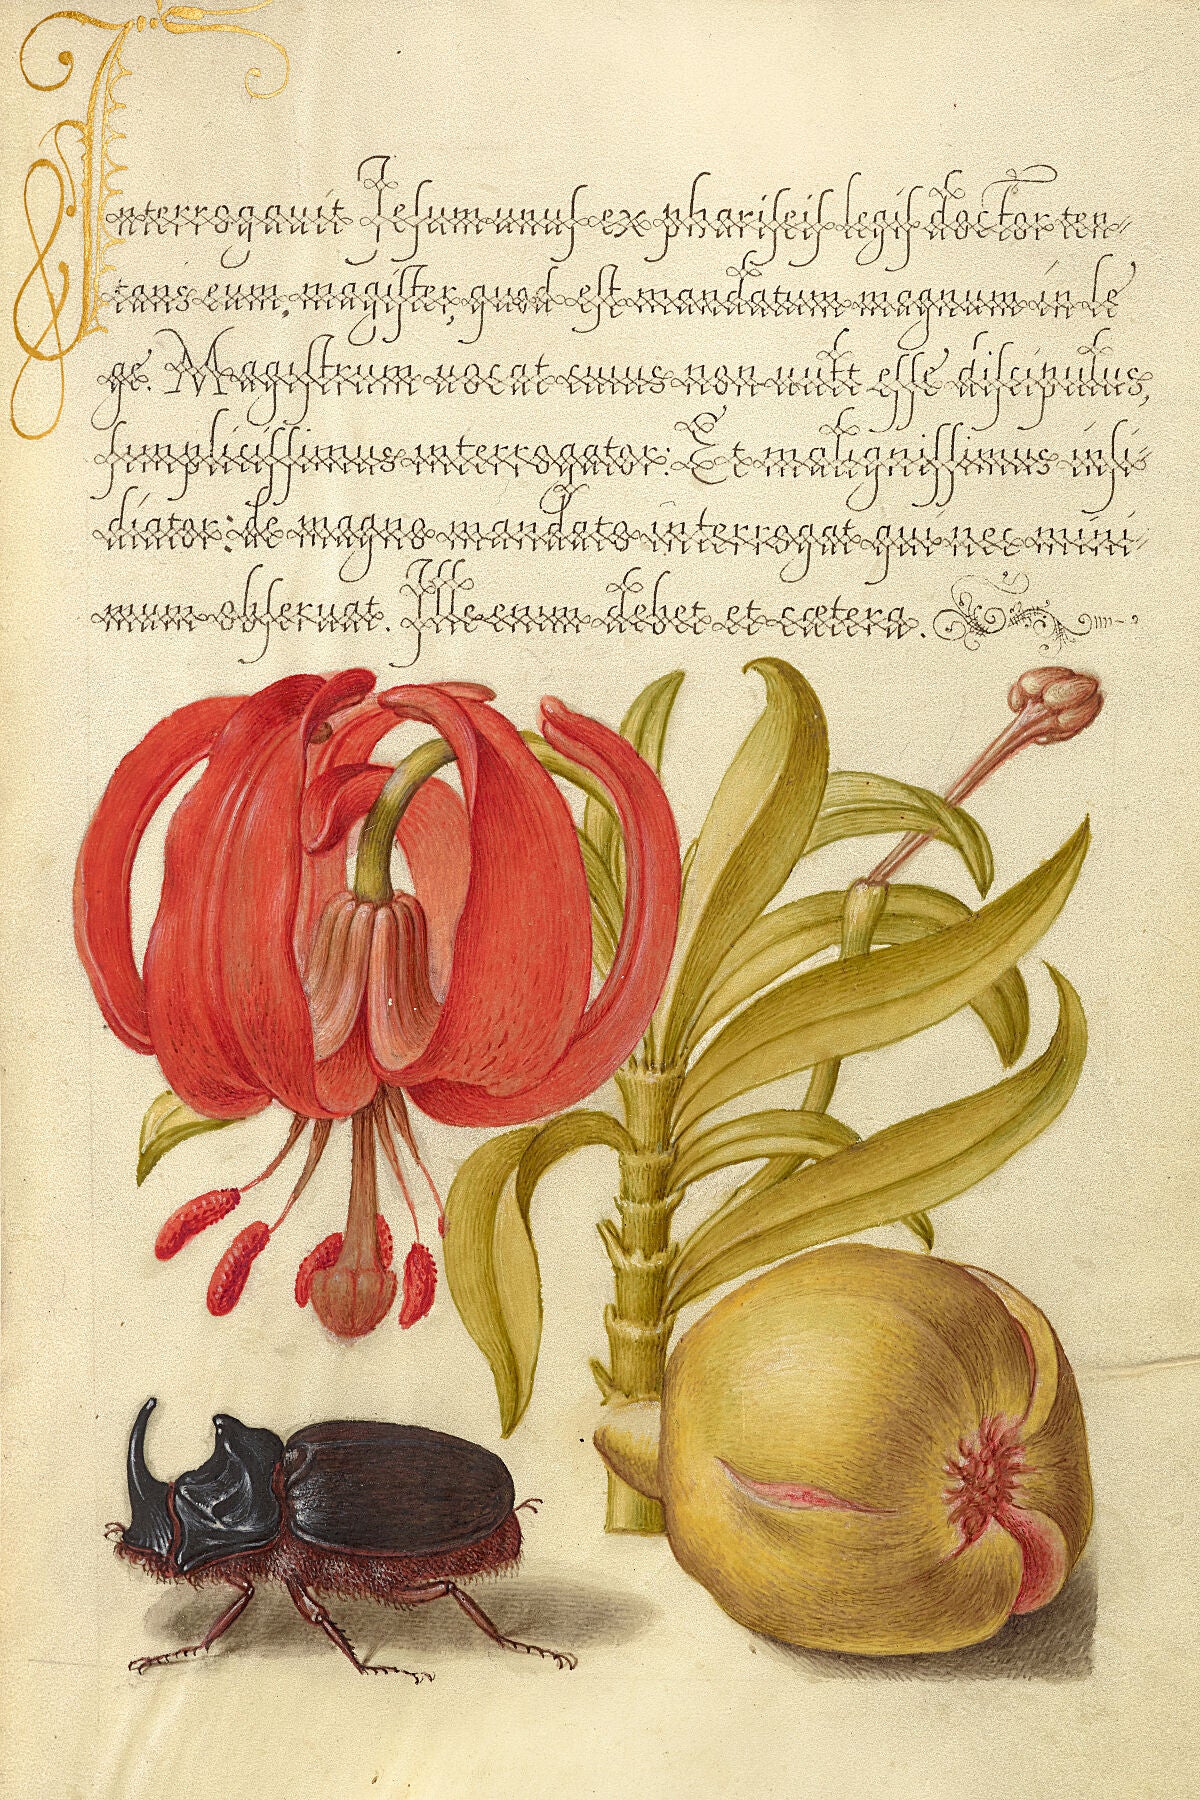 Interrogauit Jesum unus ex phariseis legis doctor ten-
tans eum, magister, quod est mandatum magnum in le
ge. Magistrum uocat cuius non uult esse discipulus,
simplicissimus interrogator: Et malignissimus insi-
diator: de magno mandato interrogat qui nec mini-
mum obseruat. Ille enim debet et cætera.